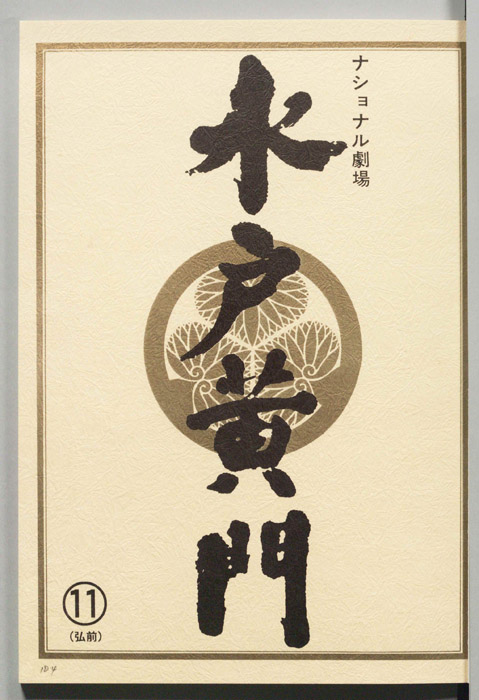 ナショナル劇場
水戸黄門
11
(弘前)